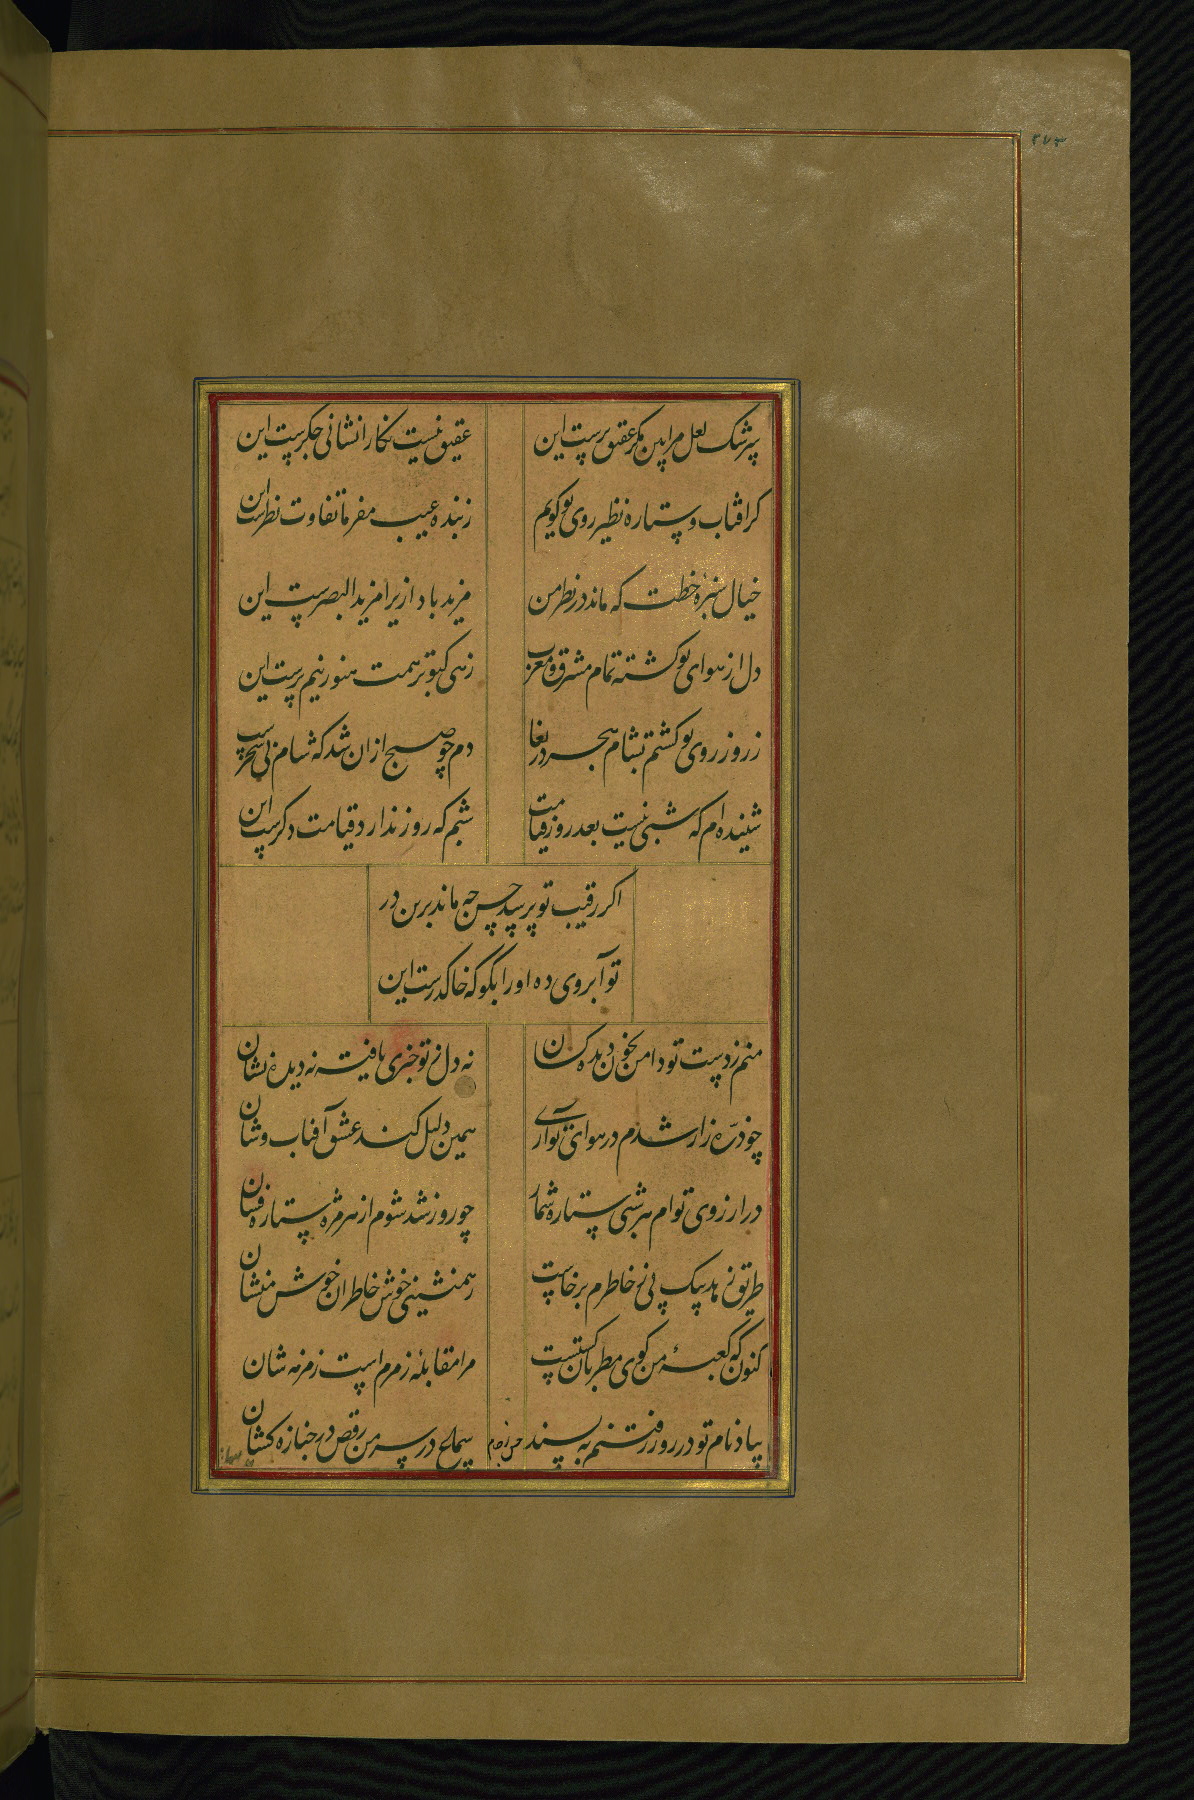 ۲۷۳
سرشک لعل مرا بین مگر عقیق ترست این
عقیق نیست نکارا نشانی جکرست این
کر افتاب و ستاره نظیر روی تو کویم
ز بنده عیب مفرما تفاوت نظرست این
خیال سبزهٔ خطت که ماند در نظر من
مزید باد ازیرا مزید البصرست این
دل از هوای تو کشته تمام مشرق و مغرب
زهی کبوتر همت هنوز نیم پرست این
ز روز روی تو کشتم بشام هجر دریغا
دم چو صبح ازان شد که شام بی سحرست
شنیده ام که شبی نیست بعد روز قیامت
شبم که روز ندارد قیامت دکرست این
اکر رقیب تو پرسد حسن چه ماند برین در
تو آبروی ده او را بکو که خاک درست این
منم ز دست تو دامن بخون دیده کشان
نه دل ز تو خبری یافته نه دیده نشان
چو ذرّه زار شدم در هوای تو آری
همین دلیل کند عشق آفتاب وشان
در ارزوی توام هر شبی ستاره شمار
چو روز شد شوم از هر مژه ستاره فشان
طریق زهد سبک پی ز خاطرم برخاست
ز همنشینی خوش خاطران خوش منشان
کنون که کعبهٔ من کوی مطربان کشتست
مرا مقابله زمزم است زمزمه شان
بیاد نام تو در روز رفتنم به پسند
سماع در سر من رقص در جنازه کشان